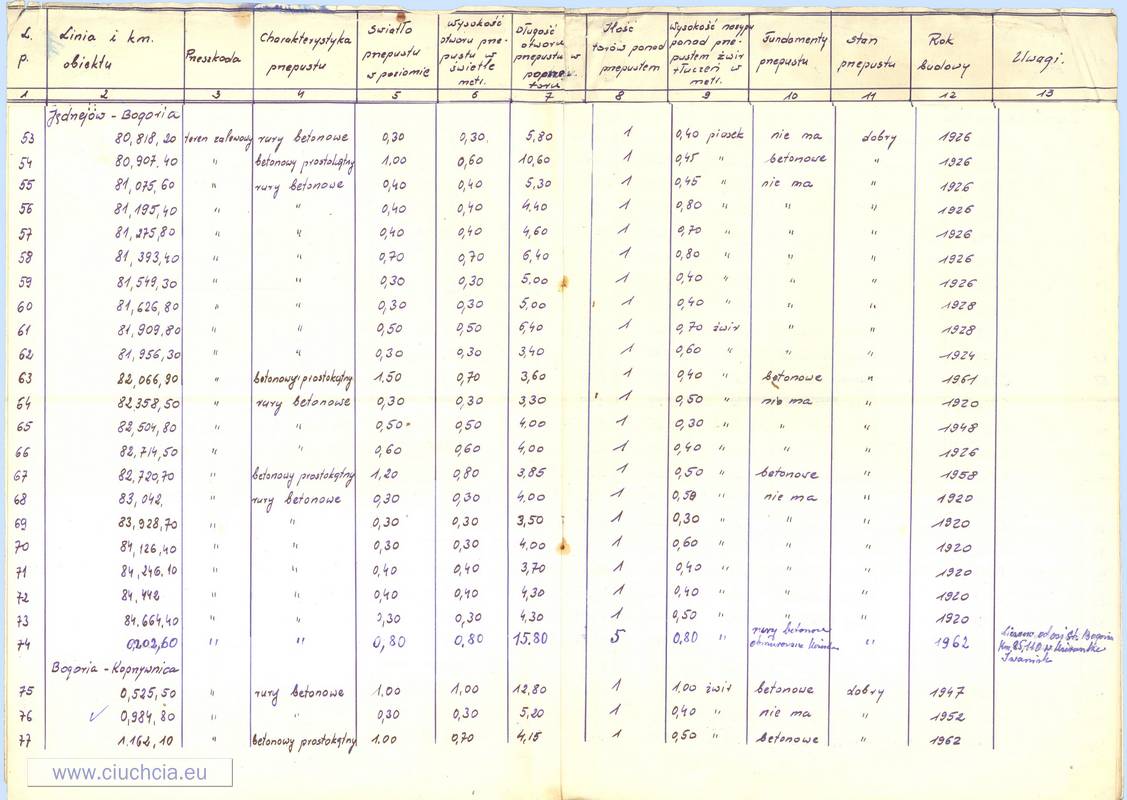 L. p. | Linia i km. obiektu | Przeszkoda | Charakterystyka przepustu | Światło przepustu w poziomie | Wysokość otworu prze- pustu w świetle metr. | Długość otworu przepustu w poprzek toru | Ilość torów ponad przepustem | Wysokość nasypu ponad prze- pustem żwir tłuczeń w metr. | Fundamenty przepustu | Stan przepustu | Rok budowy | Uwagi.
1 | 2 | 3 | 4 | 5 | 6 | 7 | 8 | 9 | 10 | 11 | 12 | 13
Jędrzejów - Bogoria
53 | 80,818,20 | teren zalewowy | rury betonowe | 0,30 | 0,30 | 5,80 | 1 | 0,40 piasek | nie ma | dobry | 1926
54 | 80,907.40 | " | betonowy prostokątny | 1.00 | 0,60 | 10,60 | 1 | 0,45 " | betonowe | " | 1926
55 | 81,075,60 | " | rury betonowe | 0,40 | 0,40 | 5,30 | 1 | 0,45 " | nie ma | " | 1926
56 | 81,195,40 | " | " | 0,40 | 0,40 | 4,40 | 1 | 0,80 " | " | " | 1926
57 | 81,275,80 | " | " | 0,40 | 0,40 | 4,60 | 1 | 0,70 " | " | " | 1926
58 | 81,393,40 | " | " | 0,70 | 0,70 | 6,40 | 1 | 0,80 " | " | " | 1926
59 | 81,549,30 | " | " | 0,30 | 0,30 | 5,00 | 1 | 0,40 " | " | " | 1926
60 | 81,626,80 | " | " | 0,30 | 0,30 | 5,00 | 1 | 0,40 " | " | " | 1928
61 | 81,909,80 | " | " | 0,50 | 0,50 | 6,40 | 1 | 0,70 żwir | " | " | 1928
62 | 81,956,30 | " | " | 0,30 | 0,30 | 3,40 | 1 | 0,60 " | " | " | 1924
63 | 82,066,90 | " | betonowy prostokątny | 1.50 | 0,70 | 3,60 | 1 | 0,40 " | betonowe | " | 1961
64 | 82.358,50 | " | rury betonowe | 0,30 | 0,30 | 3,30 | 1 | 0,50 " | nie ma | " | 1920
65 | 82,504,80 | " | " | 0,50 | 0,50 | 4,00 | 1 | 0,30 " | " | " | 1948
66 | 82,714,50 | " | " | 0,60 | 0,60 | 4,00 | 1 | 0,40 " | " | " | 1926
67 | 82,720,70 | " | betonowy prostokątny | 1,20 | 0,80 | 3,85 | 1 | 0,50 " | betonowe | " | 1958
68 | 83,042, | " | rury betonowe | 0,30 | 0,30 | 4,00 | 1 | 0,50 " | nie ma | " | 1920
69 | 83,928,70 | " | " | 0,30 | 0,30 | 3,50 | 1 | 0,30 " | " | " | 1920
70 | 84,126,40 | " | " | 0,30 | 0,30 | 4,00 | 1 | 0,60 " | " | " | 1920
71 | 84,246.10 | " | " | 0,40 | 0,40 | 3,70 | 1 | 0,40 " | " | " | 1920
72 | 84,442 | " | " | 0,40 | 0,40 | 4,30 | 1 | 0,40 " | " | " | 1920
73 | 84.664.40 | " | " | 0,30 | 0,30 | 4,30 | 1 | 0,50 " | " | " | 1920
74 | 0,202,60 | " | " | 0,80 | 0,80 | 15.80 | 5 | 0,80 " | rury betonowe | " | 1962 | Liczono od osi St. Bogoria km. 85,110 w kierunku Iwanisk
Bogoria - Koprzywnica
75 | 0,525,50 | " | rury betonowe | 1,00 | 1,00 | 12,80 | 1 | 1.00 żwir | betonowe | dobry | 1947
76 | 0,984,80 | " | " | 0,30 | 0,30 | 5,20 | 1 | 0,40 " | nie ma | " | 1952
77 | 1.162,10 | " | betonowy prostokątny | 1.00 | 0,70 | 4,15 | 1 | 0,50 " | betonowe | " | 1962
www.ciuchcia.eu